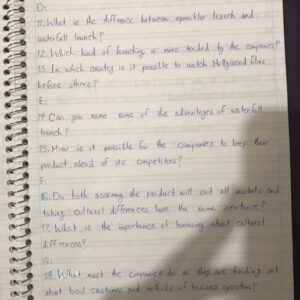 D:
11. What is the diffrence between sprinkler launch and
waterfall launch?
12. Which kind of launching is more tended by the companies?
13. In which country is it possible to watch Hollywood films
before others?
E:
14. Can you name some of the advantages of waterfall
launch?
15. How is it possible for the companies to keep their
product ahead of its competitors?
F:
16. Do both assuming the product will suit all markets and
taking cultural differences have the same importance?
17. What is the importance of knowing about cultural
differences?
G:
18. What must the companies do as they are finding out
about local customs and methods of business operation?